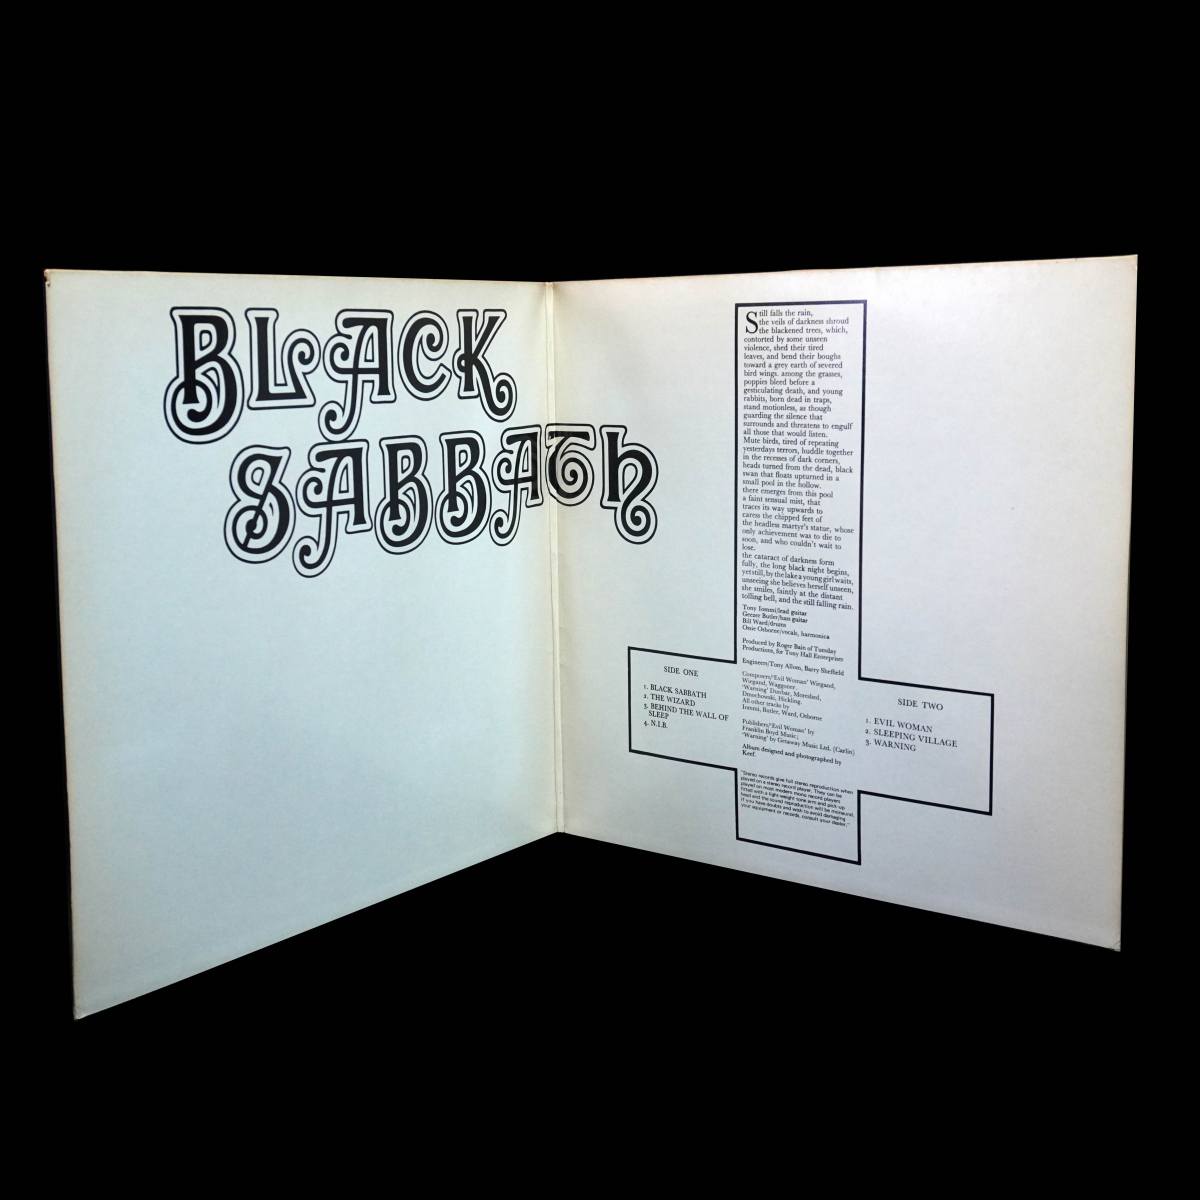 BLACK
SABBATH
Still falls the rain,
the veils of darkness shroud
the blackened trees, which,
contorted by some unseen
violence, shed their tired
leaves, and bend their boughs
toward a grey earth of severed
bird wings. among the grasses,
poppies bleed before a
gesticulating death, and young
rabbits, born dead in traps,
stand motionless, as though
guarding the silence that
surrounds and threatens to engulf
all those that would listen.
Mute birds, tired of repeating
yesterdays terrors, huddle together
in the recesses of dark corners,
heads turned from the dead, black
swan that floats upturned in a
small pool in the hollow.
there emerges from this pool
a faint sensual mist, that
traces its way upwards to
caress the chipped feet of
the headless martyr's statue, whose
only achievement was to die to
soon, and who couldn't wait to
lose.
the cataract of darkness form
fully, the long black night begins,
yet still, by the lake a young girl waits,
unseeing she believes herself unseen,
she smiles, faintly at the distant
tolling bell, and the still falling rain.
Tony Iommi/lead guitar
Geezer Butler/bass guitar
Bill Ward/drums
Ossie Osborne/vocals, harmonica
Produced by Roger Bain of Tuesday
Productions, for Tony Hall Enterprises
Engineers/Tony Allom, Barry Sheffield
Composers/'Evil Woman' Wiegand,
Wiegand, Waggoner.
'Warning' Dunbar, Moreshed,
Dmochowski, Hickling.
All other tracks by
Iommi, Butler, Ward, Osborne
Publishers/'Evil Woman' by
Franklin Boyd Music;
'Warning' by Getaway Music Ltd. (Carlin)
Album designed and photographed by
Keef.
"Stereo records give full stereo reproduction when
played on a stereo record player. They can be
played on most modern mono record players
fitted with a light-weight tone arm and pick-up
head and the sound reproduction will be monaural.
If you have doubts and wish to avoid damaging
your equipment or records, consult your dealer."
SIDE ONE
1. BLACK SABBATH
2. THE WIZARD
3. BEHIND THE WALL OF
SLEEP
4. N.I.B.
SIDE TWO
1. EVIL WOMAN
2. SLEEPING VILLAGE
3. WARNING